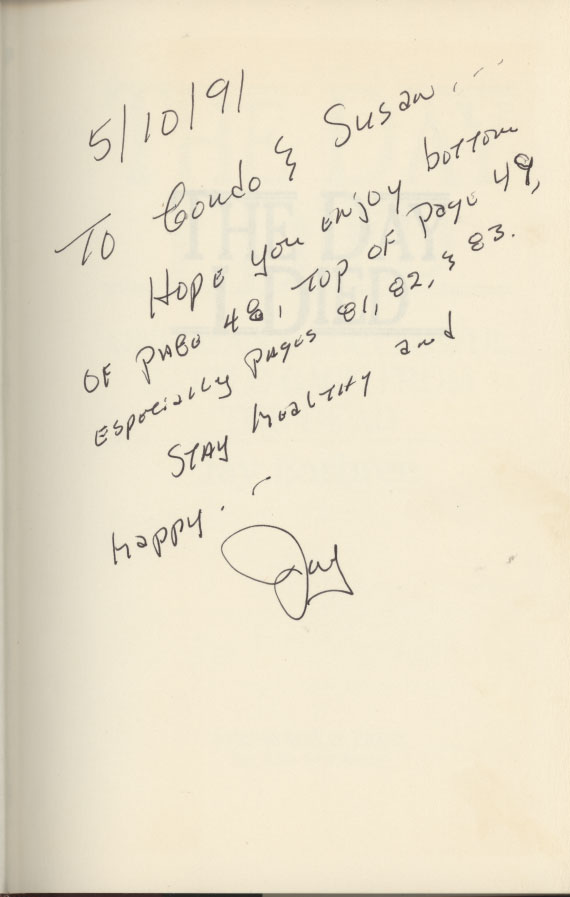 5/10/91
To Condo & Susan...
Hope you enjoy bottom
of page 48, top of page 49,
especially pages 81, 82, & 83.
Stay healthy and
happy..-
Jay
THE DAY
I DIED